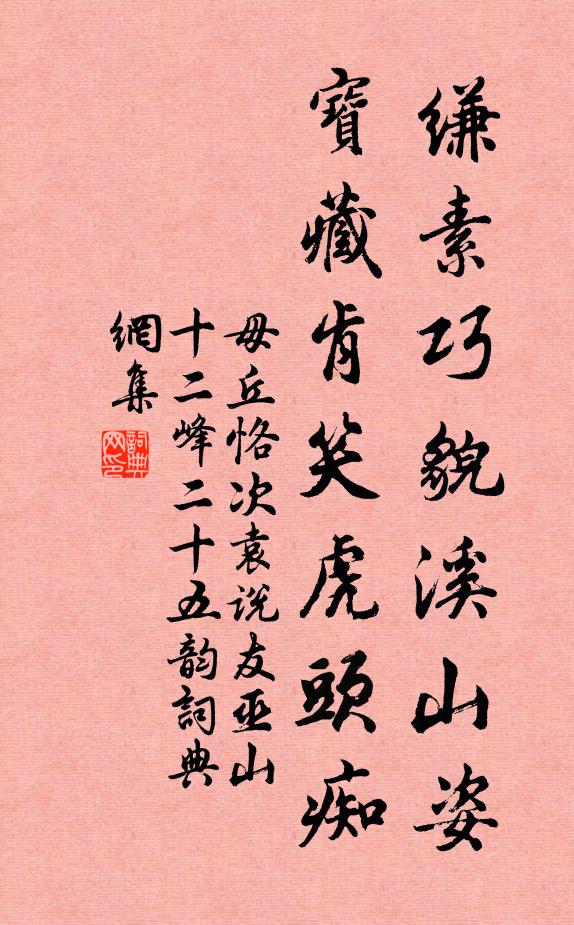 縑素巧貌溪山姿
寶藏肯笑虎頭痴
毋丘恪次袁說友巫山
十二峰二十五韵詞典
網集
詞典
网印